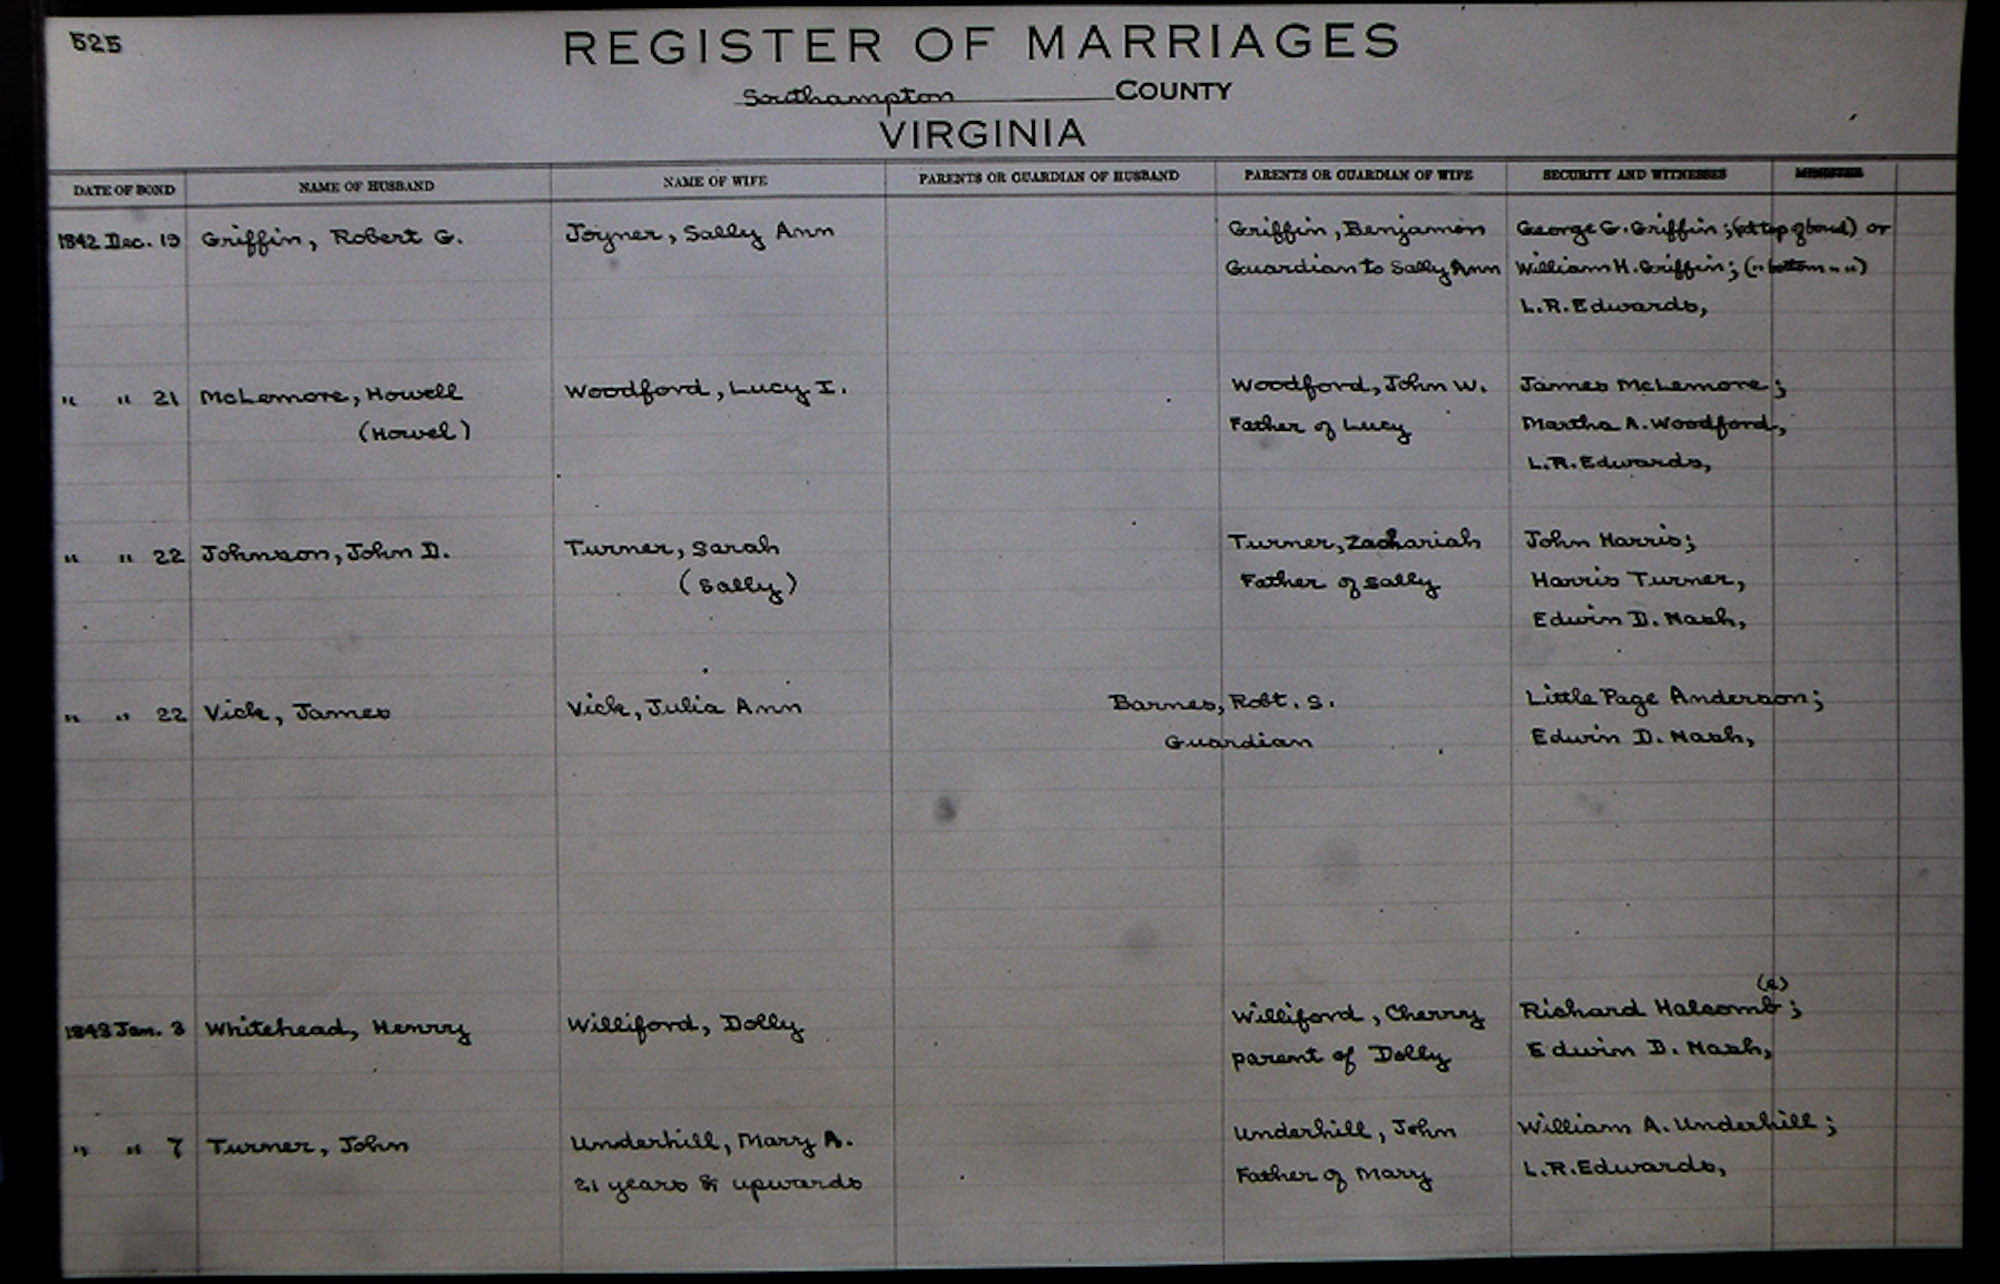 525
REGISTER OF MARRIAGES
Southampton COUNTY
VIRGINIA
DATE OF BOND NAME OF HUSBAND NAME OF WIFE PARENTS OR GUARDIAN OF HUSBAND PARENTS OR GUARDIAN OF WIFE SECURITY AND WITNESSES MINISTER
1842 Dec. 19 Griffin, Robert G. Joyner, Sally Ann Griffin, Benjamin George G. Griffin; (at top of bond) or
Guardian to Sally Ann William H. Griffin; (" bottom " ")
L.R. Edwards,
" " 21 McLemore, Howell Woodford, Lucy I. Woodford, John W. James McLemore;
(Howel) Father of Lucy Martha A. Woodford,
L.R. Edwards,
" " 22 Johnson, John D. Turner, Sarah Turner, Zachariah John Harris;
(Sally) Father of Sally Harris Turner,
Edwin D. Nash,
" " 22 Vick, James Vick, Julia Ann Barnes, Robt. S. Little Page Anderson;
Guardian Edwin D. Nash,
(e)
1843 Jan. 3 Whitehead, Henrry Williford, Dolly Williford, Cherry Richard Halcomb;
parent of Dolly Edwin D. Nash,
" " 7 Turner, John Underhill, Mary A. Underhill, John William A. Underhill;
21 years & upwards Father of Mary L.R. Edwards,